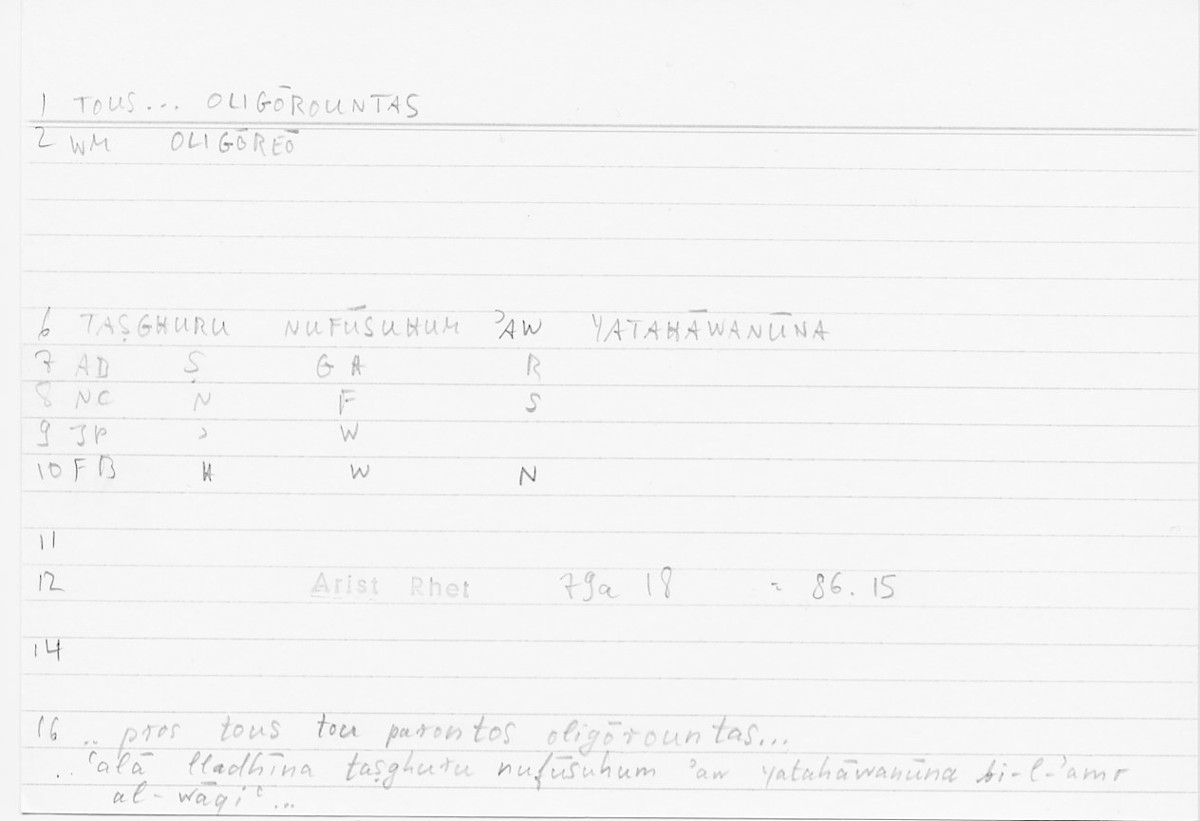 1 TOUS... OLIGŌROUNTAS
2 WM OLIGŌREŌ
6 TAṢGHURU NUFŪSUHUM ʾAW YATAHĀWANŪNA
7 AD Ṣ G A R
8 NC N F S
9 JP ʾ W
10 FB H W N
11
12 Arist Rhet 79a 18 ~ 86.15
14
16 .. pros tous tou parontos oligōrountas...
.. ʿalā lladhīna taṣghuru nufūsuhum ʾaw yatahāwanūna bi-l-ʾamr
al-wāqiʿ...